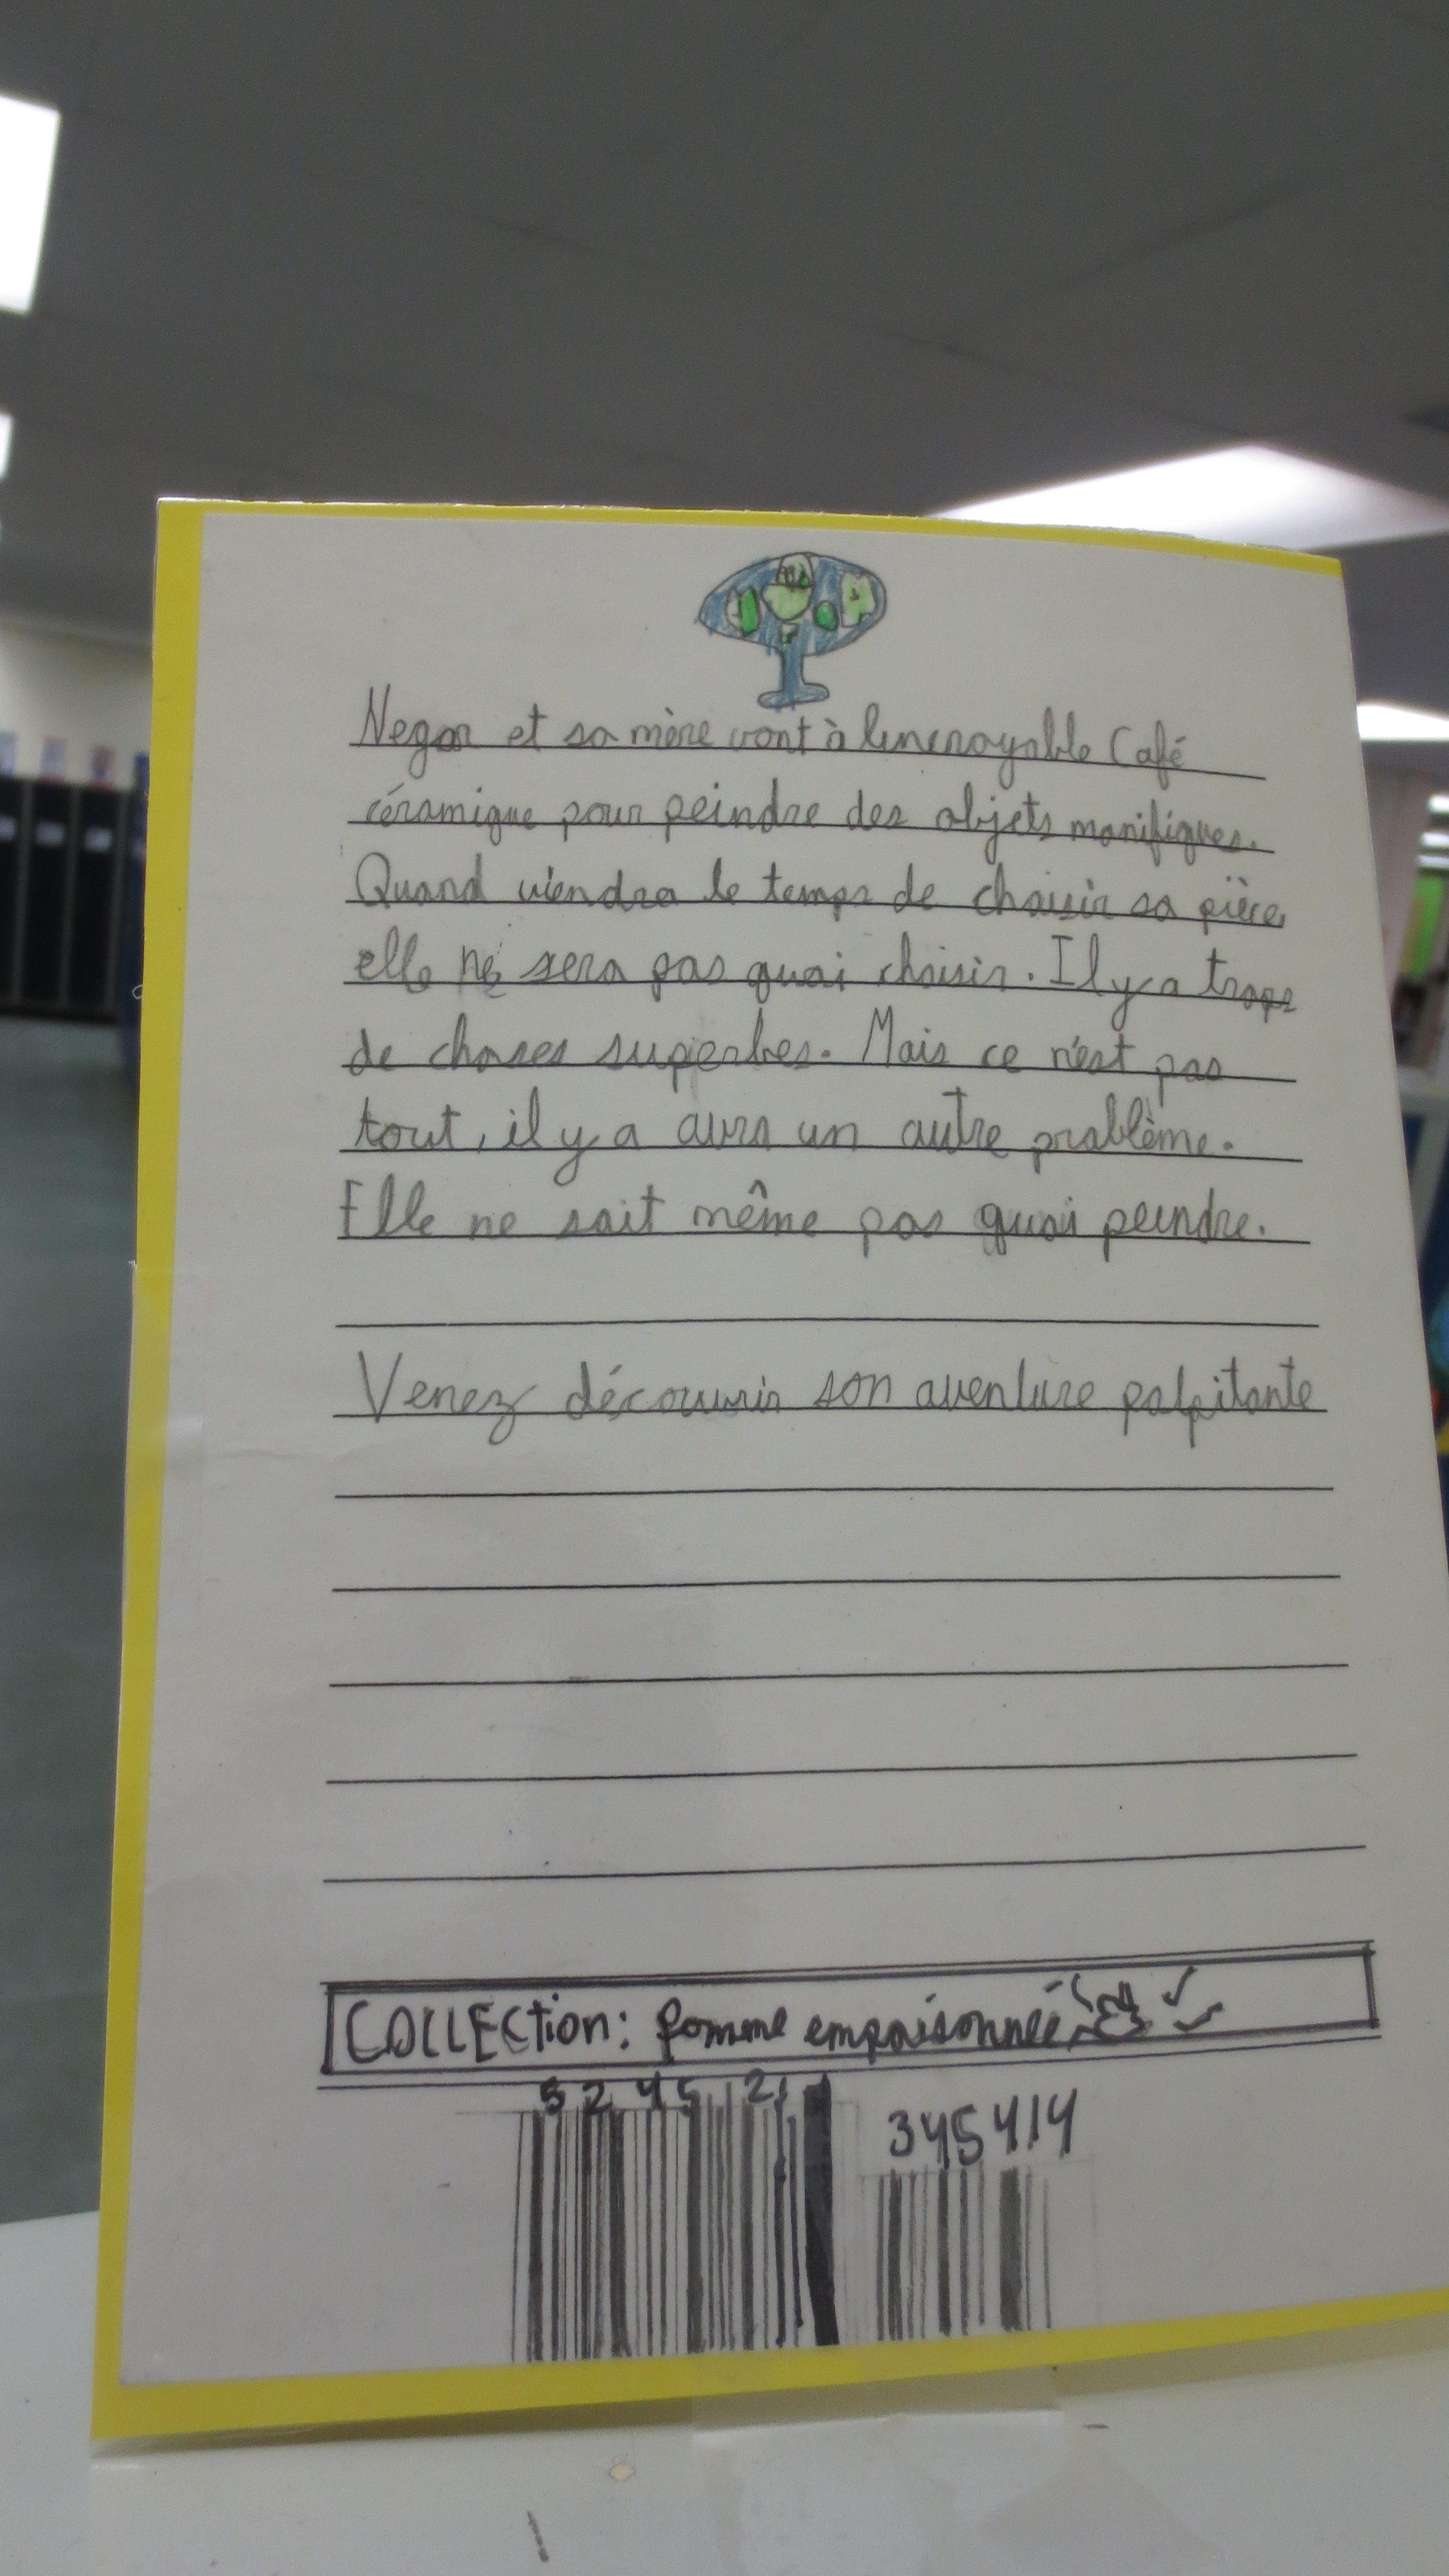 Negar et sa mère vont à l'incroyable Café
céramique pour peindre des objets manifiques.
Quand viendra le temps de choisir sa pièce,
elle ne sera pas quoi choisir. Il y a trops
de choses superbes. Mais ce n'est pas
tout, il y a aura un autre problème.
Elle ne sait même pas quoi peindre.
Venez découvrir son aventure palpitante
COLLECtion: Pomme empoisonnée
5 2 45 121
345414